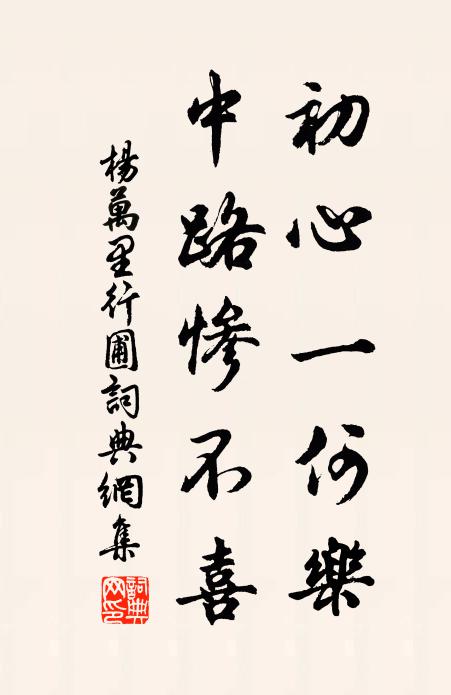 初心一何樂
中路慘不喜
楊萬里行圃詞典網集
詞典
网印